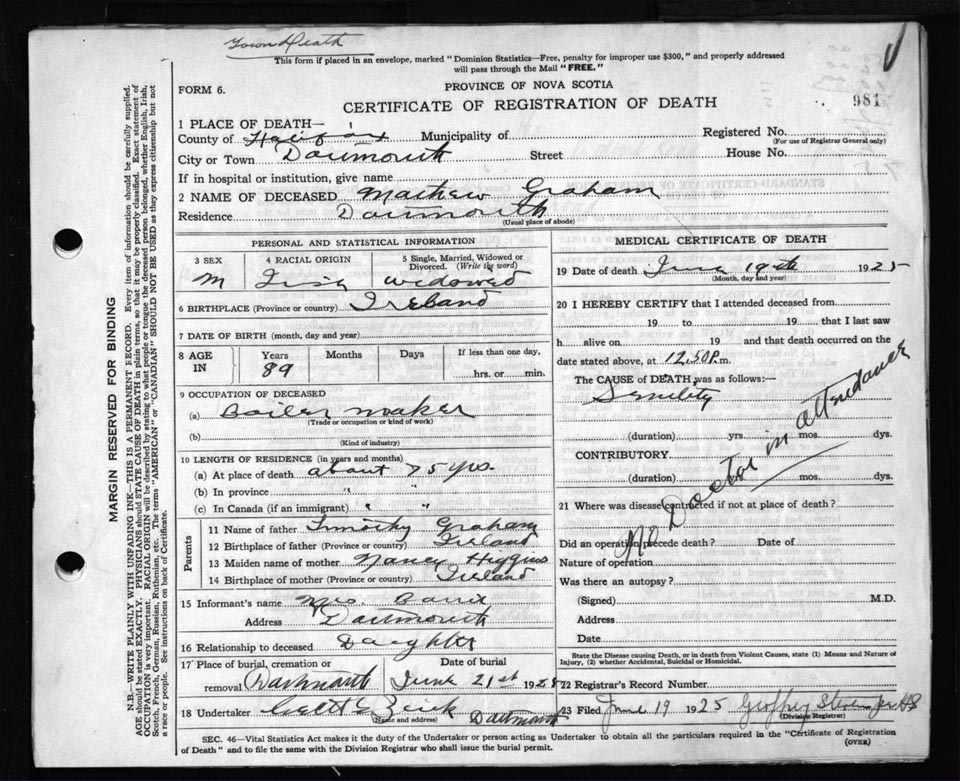 Town Death
This form if placed in an envelope, marked "Dominion Statistics—Free, penalty for improper use $300," and properly addressed
will pass through the Mail "FREE."
FORM 6.
PROVINCE OF NOVA SCOTIA
CERTIFICATE OF REGISTRATION OF DEATH
981
1 PLACE OF DEATH—
County of Halifax Municipality of Registered No.
(For use of Registrar General only)
City or Town Dartmouth Street House No.
If in hospital or institution, give name
2 NAME OF DECEASED Mathew Graham
Residence Dartmouth
(Usual place of abode)
PERSONAL AND STATISTICAL INFORMATION
3 SEX 4 RACIAL ORIGIN 5 Single, Married, Widowed or Divorced. (Write the word)
M Irish widowed
6 BIRTHPLACE (Province or country) Ireland
7 DATE OF BIRTH (month, day and year)
8 AGE IN Years Months Days If less than one day,
89 hrs. or min.
9 OCCUPATION OF DECEASED
(a) Boiler maker
(Trade or occupation or kind of work)
(b)
(Kind of industry)
10 LENGTH OF RESIDENCE (in years and months)
(a) At place of death about 75 yrs.
(b) In province " "
(c) In Canada (if an immigrant) " "
Parents
11 Name of father Timothy Graham
12 Birthplace of father (Province or country) Ireland
13 Maiden name of mother Nancy Higgins
14 Birthplace of mother (Province or country) Ireland
15 Informant's name Mrs.
Address Dartmouth
16 Relationship to deceased Daughter
17 Place of burial, cremation or Date of burial
removal Dartmouth June 21st 1925
18 Undertaker Dartmouth
(Name and address)
MEDICAL CERTIFICATE OF DEATH
19 Date of death June 19th 1925
(Month, day and year)
20 I HEREBY CERTIFY that I attended deceased from
19 to 19 that I last saw
h alive on 19 and that death occurred on the
date stated above, at 12.50 P.m.
The CAUSE of DEATH was as follows:—
Senility
(duration) yrs. mos. dys.
CONTRIBUTORY
(duration) mos. dys.
No Doctor in attendance
21 Where was disease contracted if not at place of death?
Did an operation precede death? Date of
Nature of operation
Was there an autopsy?
(Signed) M.D.
Address
Date
State the Disease causing Death, or in death from Violent Causes, state (1) Means and Nature of
Injury, (2) whether Accidental, Suicidal or Homicidal.
22 Registrar's Record Number
23 Filed June 19 1925
(Division Registrar)
SEC. 46—Vital Statistics Act makes it the duty of the Undertaker or person acting as Undertaker to obtain all the particulars required in the "Certificate of Registration
of Death" and to file the same with the Division Registrar who shall issue the burial permit.
(OVER)
MARGIN RESERVED FOR BINDING
N.B.—WRITE PLAINLY WITH UNFADING INK—THIS IS A PERMANENT RECORD. Every item of information should be carefully supplied.
AGE should be stated EXACTLY. PHYSICIANS should STATE CAUSE OF DEATH in plain terms, so that it may be properly classified. Exact statement of
OCCUPATION is very important. RACIAL ORIGIN will be described by stating to what people or tongue the deceased person belonged, whether English, Irish,
Scotch, French, German, Russian, Ruthenian, etc. The terms "AMERICAN" or "CANADIAN" SHOULD NOT BE USED as they express citizenship but not
a race or people. See instructions on back of Certificate.